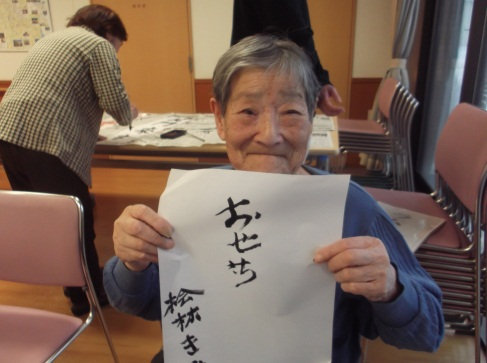 おせち
桧林き